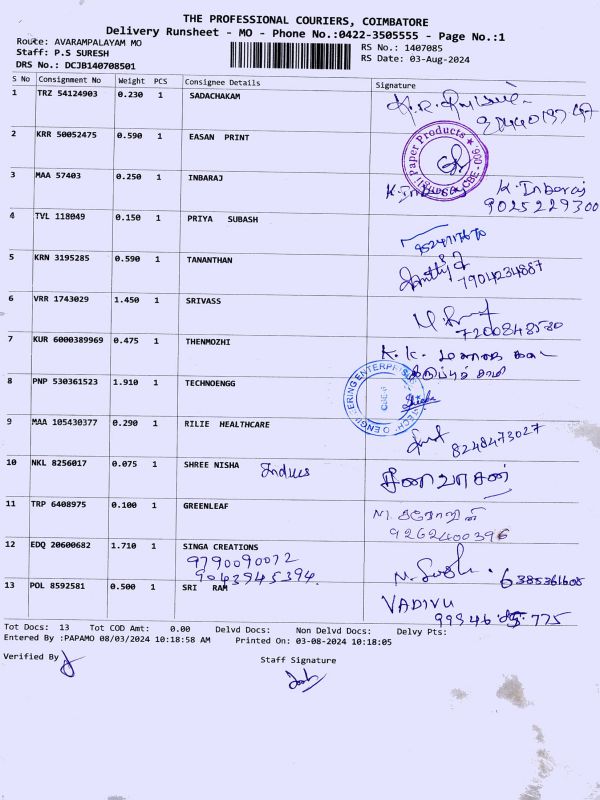 THE PROFESSIONAL COURIERS, COIMBATORE
Delivery Runsheet - MO - Phone No.:0422-3505555 - Page No.:1
Route: AVARAMPALAYAM MO
RS No.: 1407085
Staff: P.S SURESH
RS Date: 03-Aug-2024
DRS No.: DCJB140708501
S No Consignment No Weight PCS Consignee Details Signature
1 TRZ 54124903 0.230 1 SADACHAKAM
2 KRR 50052475 0.590 1 EASAN PRINT
Paper Products
CBE-006
3 MAA 57403 0.250 1 INBARAJ K. Inbaraj K. Inbaraj
9025229300
4 TVL 118049 0.150 1 PRIYA SUBASH
5 KRN 3195285 0.590 1 TANANTHAN
7904234887
6 VRR 1743029 1.450 1 SRIVASS
7200848580
7 KUR 6000389969 0.475 1 THENMOZHI K. K.
8 PNP 530361523 1.910 1 TECHNOENGG
ENGINEERING ENTERPRISES
CBE-6
9 MAA 105430377 0.290 1 RILIE HEALTHCARE
8248473027
10 NKL 8256017 0.075 1 SHREE NISHA Indus சீனிவாசன்
11 TRP 6408975 0.100 1 GREENLEAF
9262400396
12 EDQ 20600682 1.710 1 SINGA CREATIONS
9790090072
9043945394. 6385361605
13 POL 8592581 0.500 1 SRI RAM VADIVU
Tot Docs: 13 Tot COD Amt: 0.00 Delvd Docs: Non Delvd Docs: Delvy Pts:
Entered By :PAPAMO 08/03/2024 10:18:58 AM Printed On: 03-08-2024 10:18:05
Verified By
Staff Signature